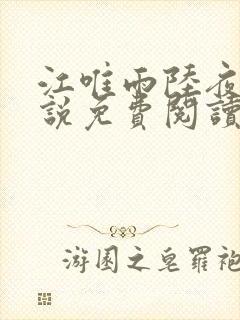 江唯雨陸夜
說免費閱讀
游園之皂羅袍